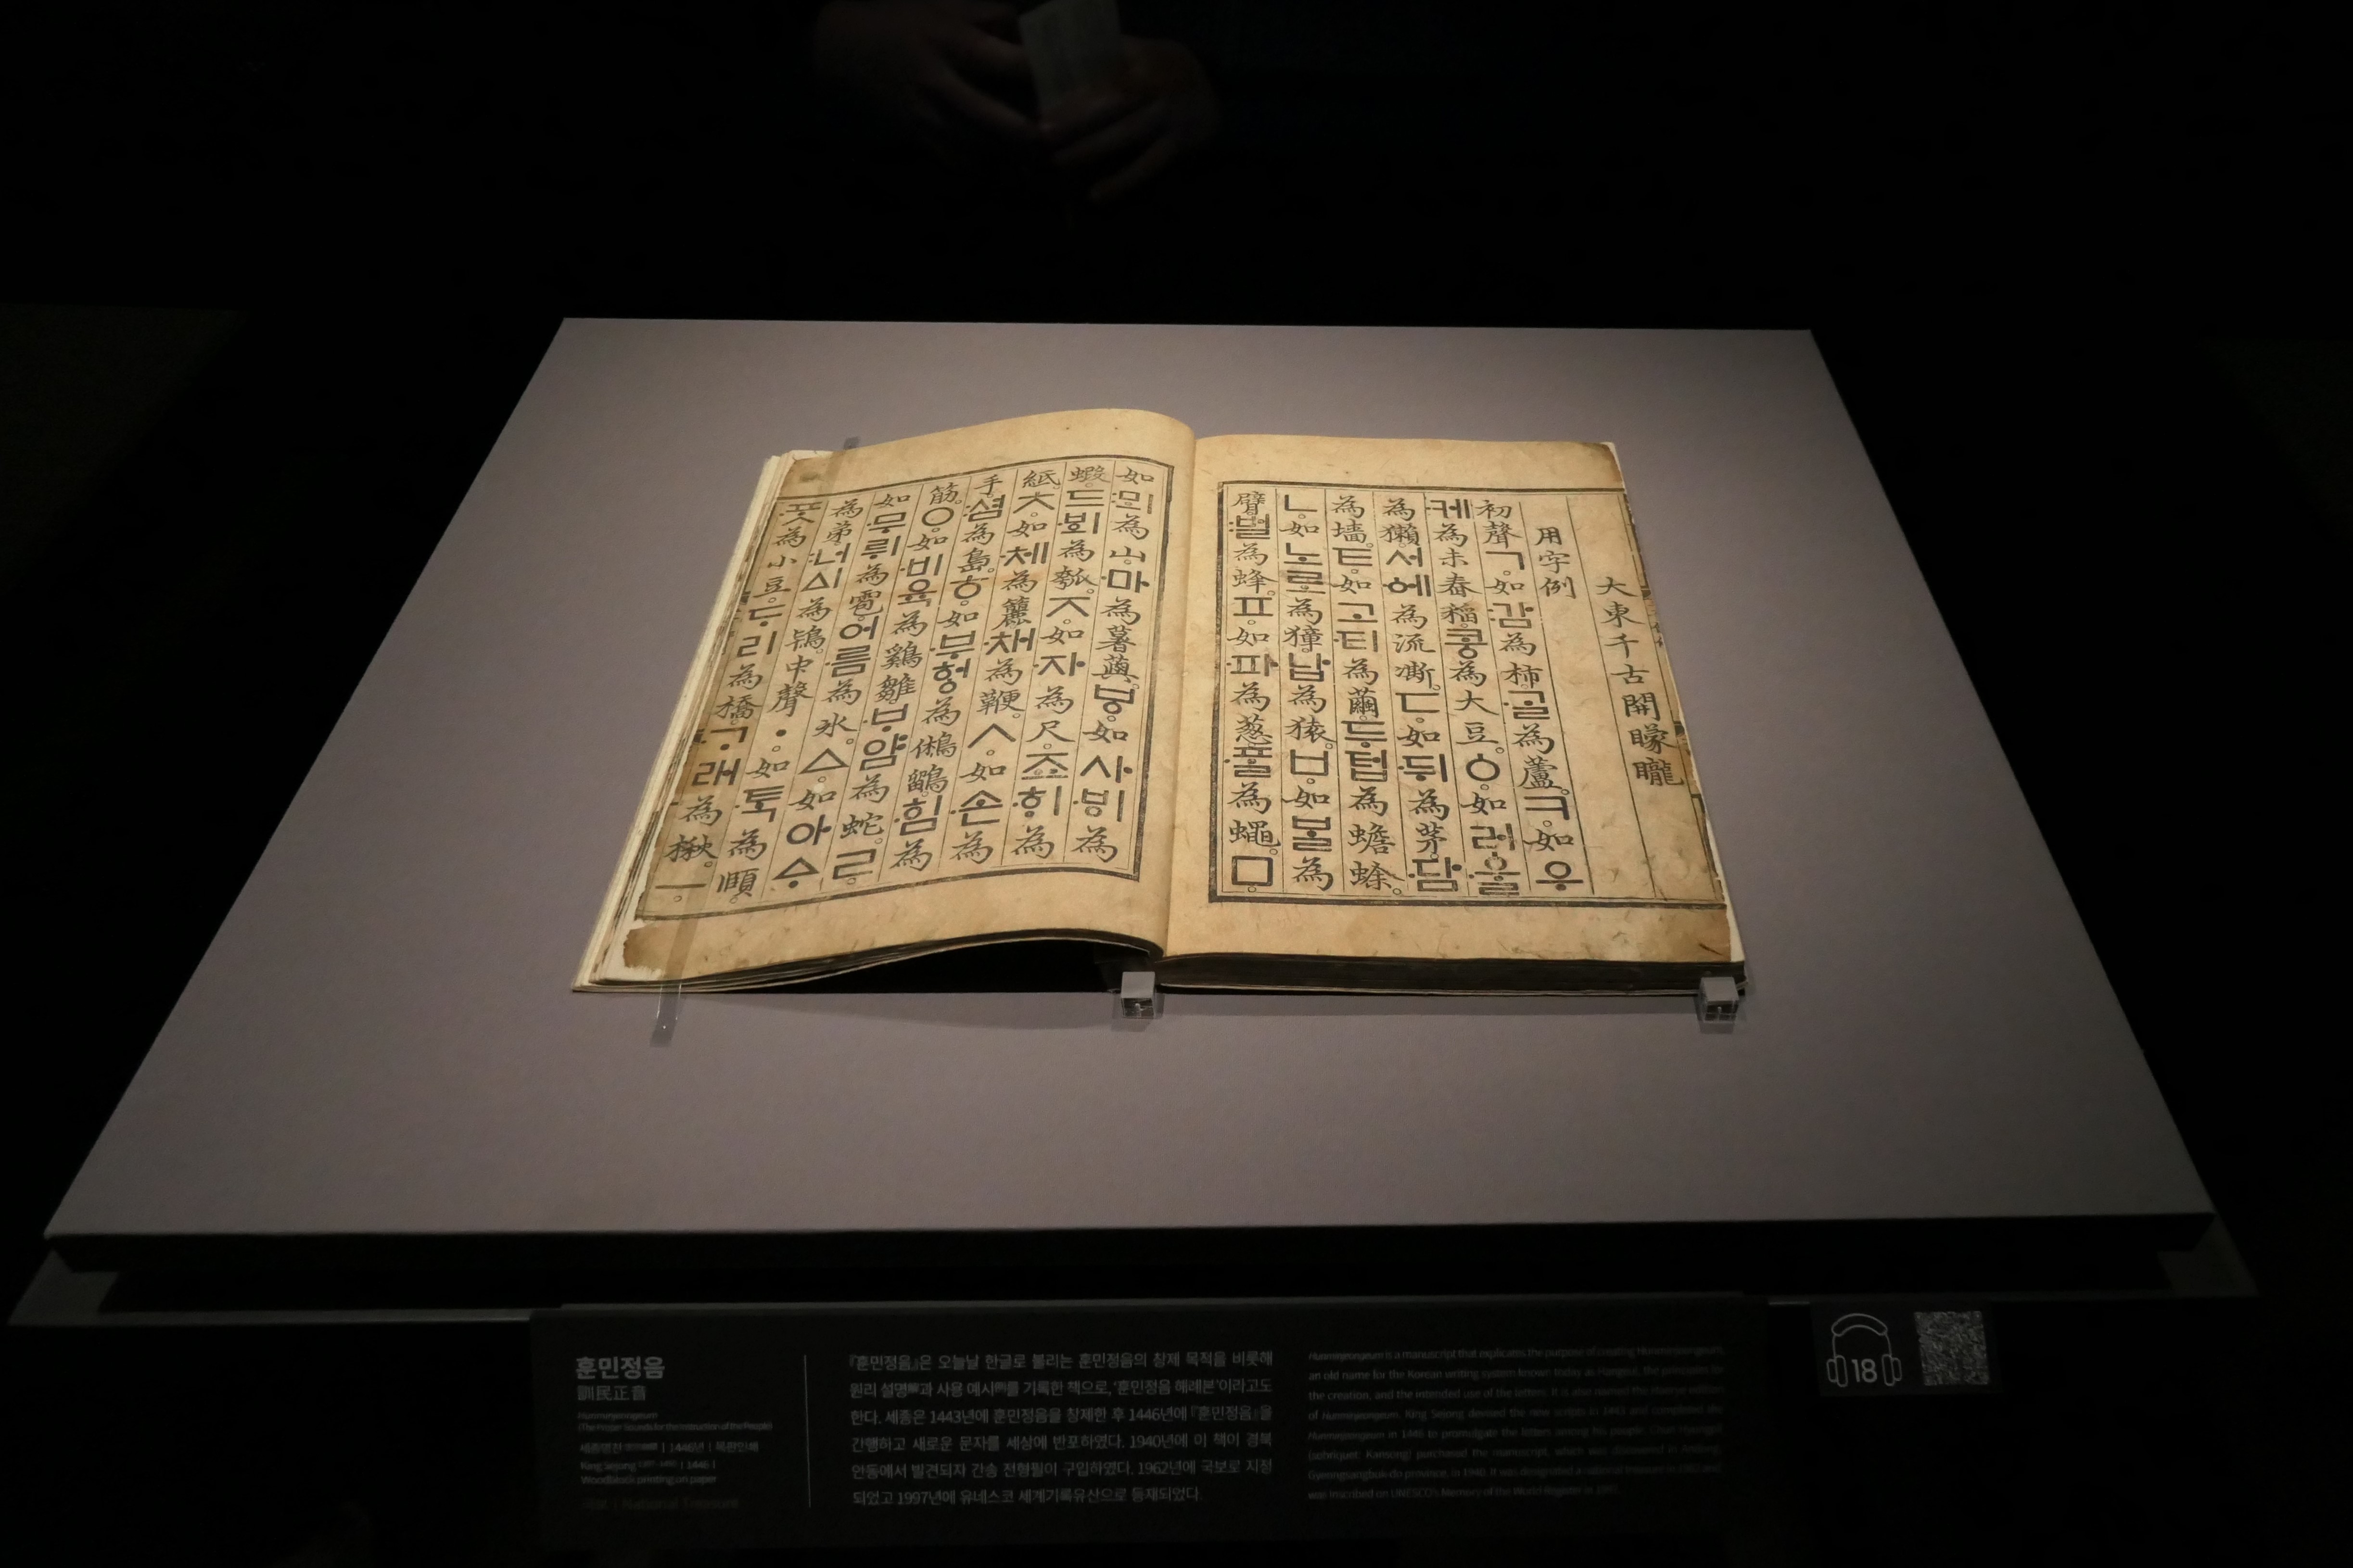 大東千古開矇矓
用字例
初聲ㄱ。如:감為柿。·ᄀᆞᆯ為蘆。ㅋ。如우
·케為未舂稻。콩為大豆。ㆁ。如러·울
為獺。서·에為流凘。ㄷ。如·뒤為茅。·담
為墻。ㅌ。如고·티為繭。두텁為蟾蜍。
ㄴ。如노로為獐。납為猿。ㅂ。如ᄇᆞᆯ為
臂。:벌為蜂。ㅍ。如·파為葱。·ᄑᆞᆯ為蠅。ㅁ。
如:뫼為山。·마為薯藇。ㅸ。如사·ᄫᅵ為
蝦。드·ᄫᅴ為瓠。ㅈ。如·자為尺。죠·ᄒᆡ為
紙。ㅊ。如·체為簏。·채為鞭。ㅅ。如·손為
手。:셤為島。ㅎ。如·부헝為鵂鶹。·힘為
筋。ㅇ。如·비육為鷄雛。·ᄇᆞ얌為蛇。ㄹ。
如·무뤼為雹。어·름為氷。ㅿ。如아ᅀᆞ
為弟。:너ᅀᅵ為鴇。中聲ㆍ。如·ᄐᆞᆨ為頤。
·ᄑᆞᆺ為小豆。ᄃᆞ리為橋。·ᄀᆞ래為楸。ㅡ。
훈민정음
訓民正音
Hunminjeongeum
(The Proper Sounds for the Instruction of the People)
1446년 | 목판인쇄
King Sejong | 1446 |
Woodblock printing on paper
National Treasure
『훈민정음』은 오늘날 한글로 불리는 훈민정음의 창제 목적을 비롯해
원리 설명과 사용 예시를 기록한 책으로, ‘훈민정음 해례본’이라고도
한다. 세종은 1443년에 훈민정음을 창제한 후 1446년에 『훈민정음』을
간행하고 새로운 문자를 세상에 반포하였다. 1940년에 이 책이 경북
안동에서 발견되자 간송 전형필이 구입하였다. 1962년에 국보로 지정
되었고 1997년에 유네스코 세계기록유산으로 등재되었다.
Hunminjeongeum is a manuscript that explicates the purpose of creating Hunminjeongeum,
an old name for the Korean writing system known today as Hangeul, the principles for
the creation, and the intended use of the letters. It is also named the Haerye edition
of Hunminjeongeum. King Sejong devised the new scripts in 1443 and completed the
Hunminjeongeum in 1446 to promulgate the letters among his people. Chun Hyungpil
(sobriquet: Kansong) purchased the manuscript, which was discovered in Andong,
Gyeongsangbuk-do province, in 1940. It was designated a national treasure in 1962 and
was inscribed on UNESCO's Memory of the World Register in 1997.
18